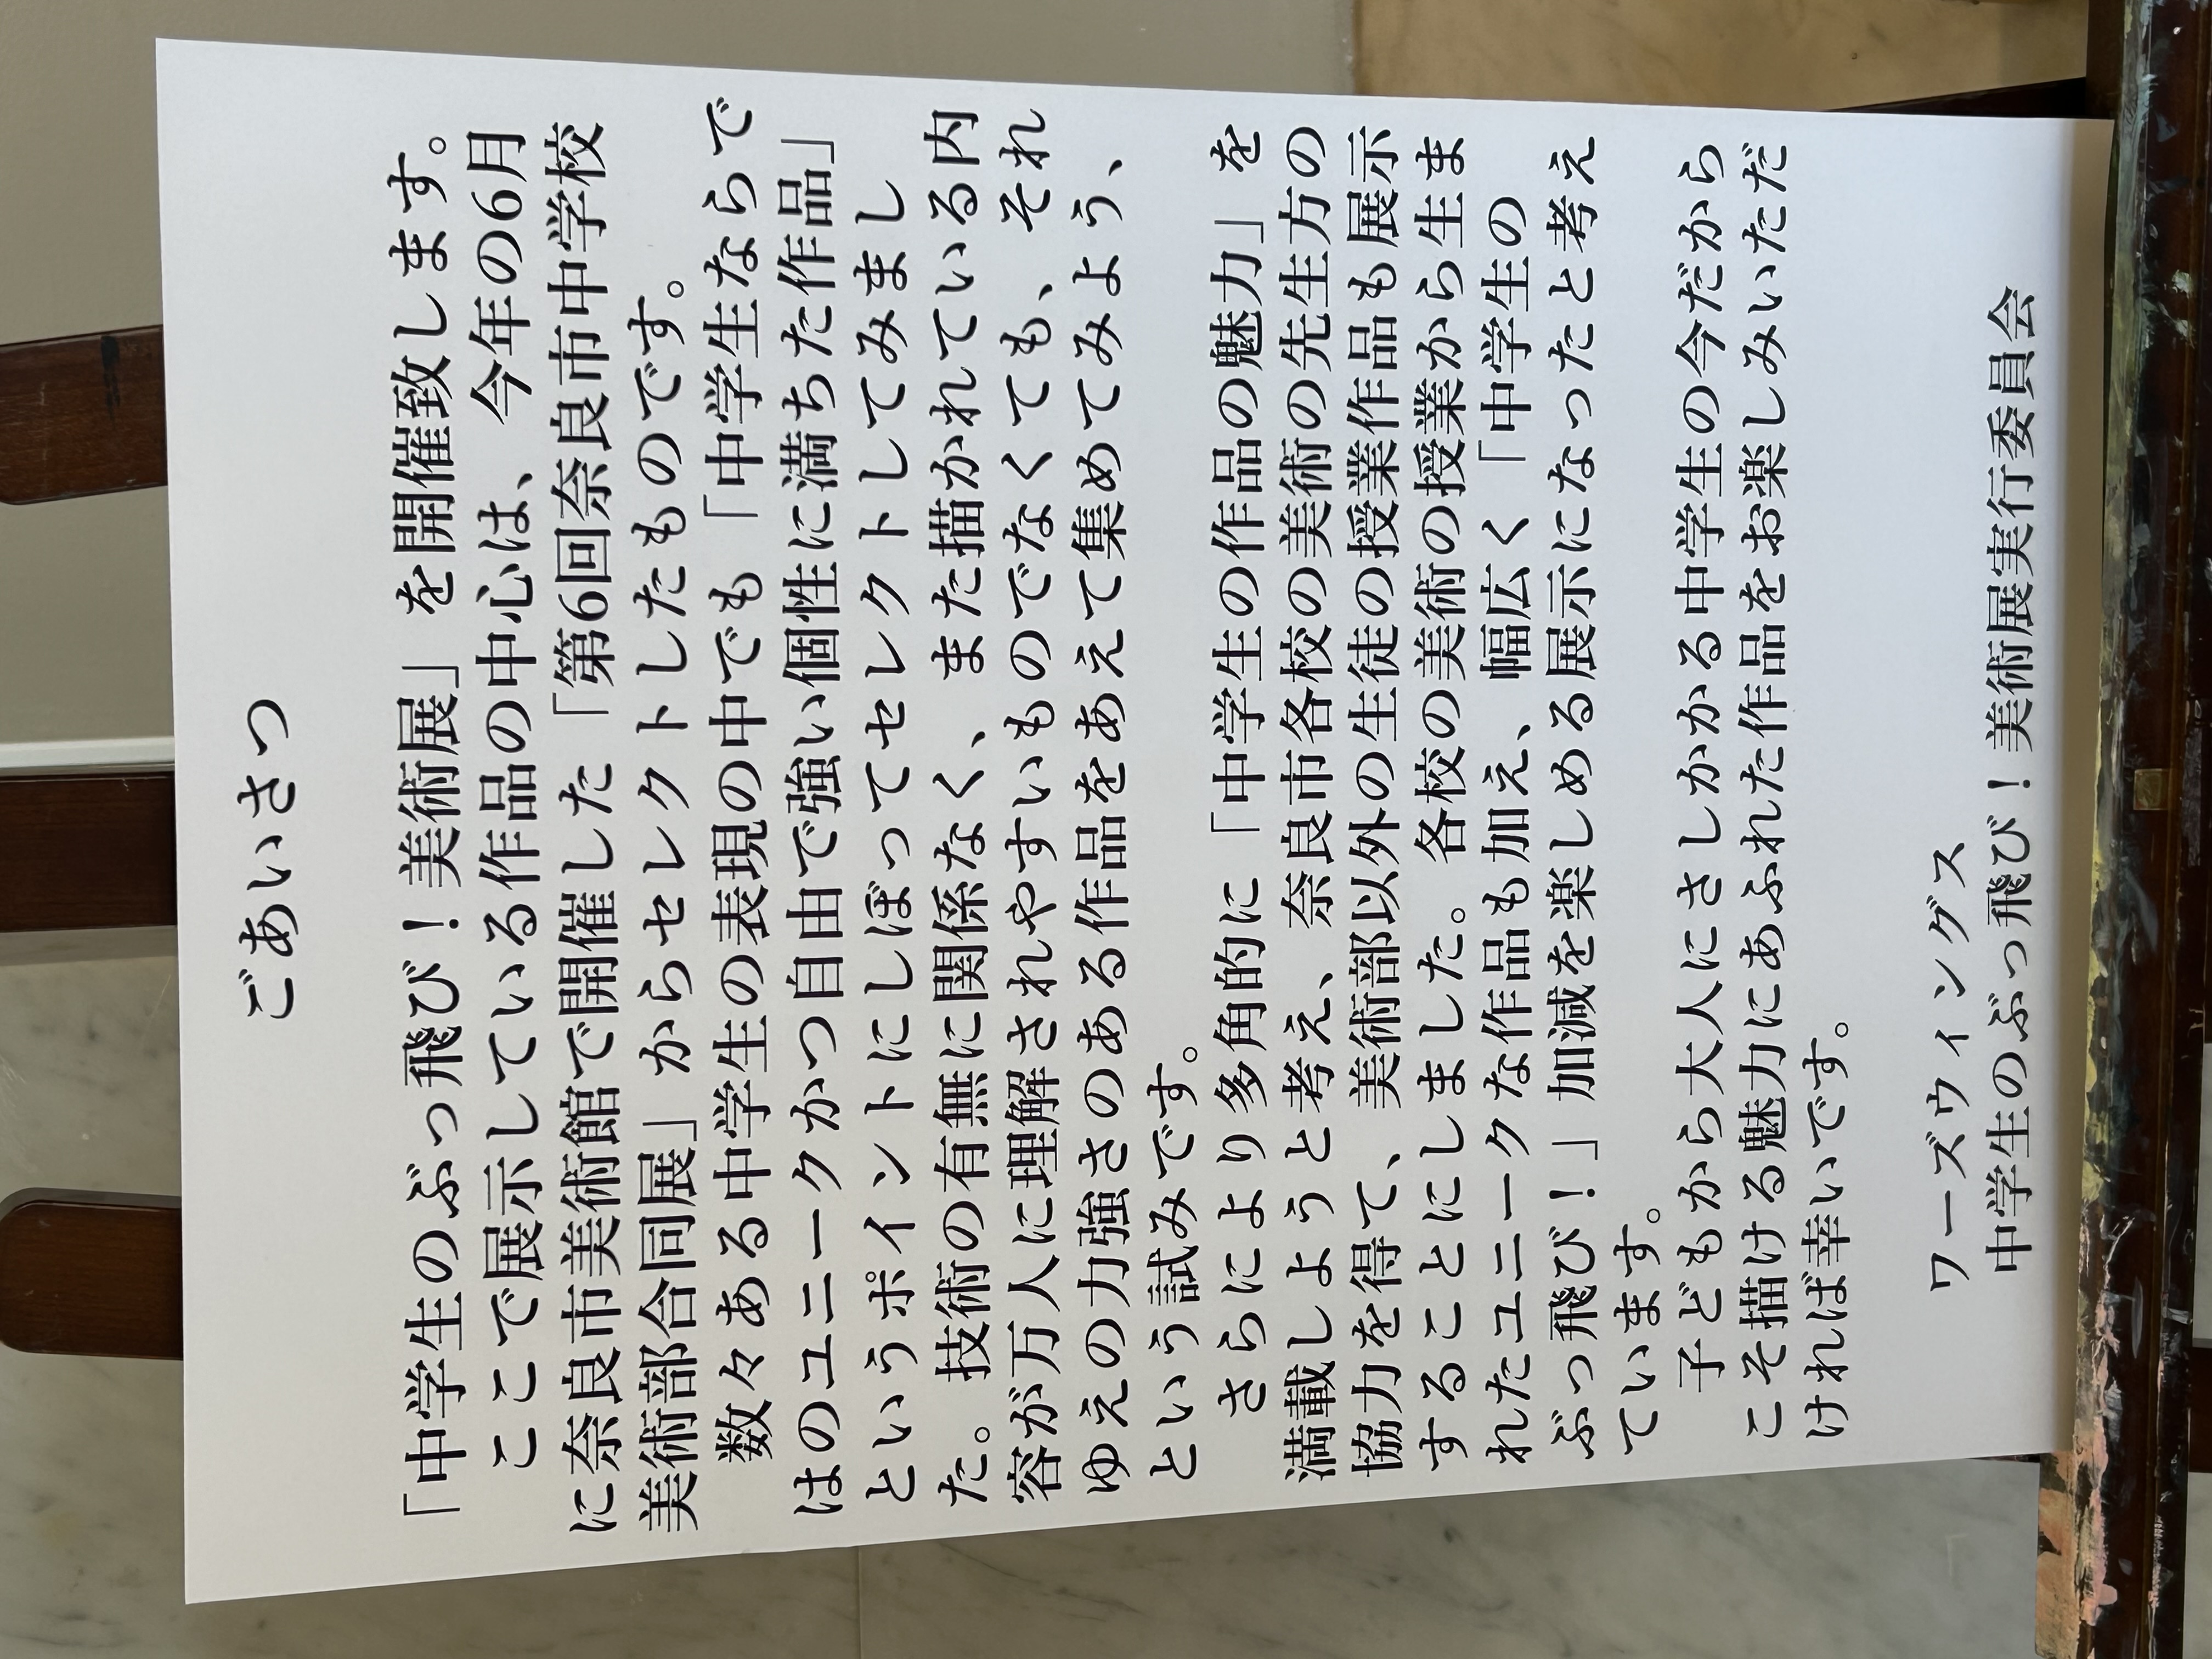 ごあいさつ
「中学生のぶっ飛び！美術展」を開催致します。
ここで展示している作品の中心は、今年の6月
に奈良市美術館で開催した「第6回奈良市中学校
美術部合同展」からセレクトしたものです。
数々ある中学生の表現の中でも「中学生ならで
はのユニークかつ自由で強い個性に満ちた作品」
というポイントにしぼってセレクトしてみまし
た。技術の有無に関係なく、また描かれている内
容が万人に理解されやすいものでなくても、それ
ゆえの力強さのある作品をあえて集めてみよう、
という試みです。
さらにより多角的に「中学生の作品の魅力」を
満載しようと考え、奈良市各校の美術の先生方の
協力を得て、美術部以外の生徒の授業作品も展示
することにしました。各校の美術の授業から生ま
れたユニークな作品も加え、幅広く「中学生の
ぶっ飛び！」加減を楽しめる展示になったと考え
ています。
子どもから大人にさしかかる中学生の今だから
こそ描ける魅力にあふれた作品をお楽しみいただ
ければ幸いです。
ワーズウィングス
中学生のぶっ飛び！美術展実行委員会